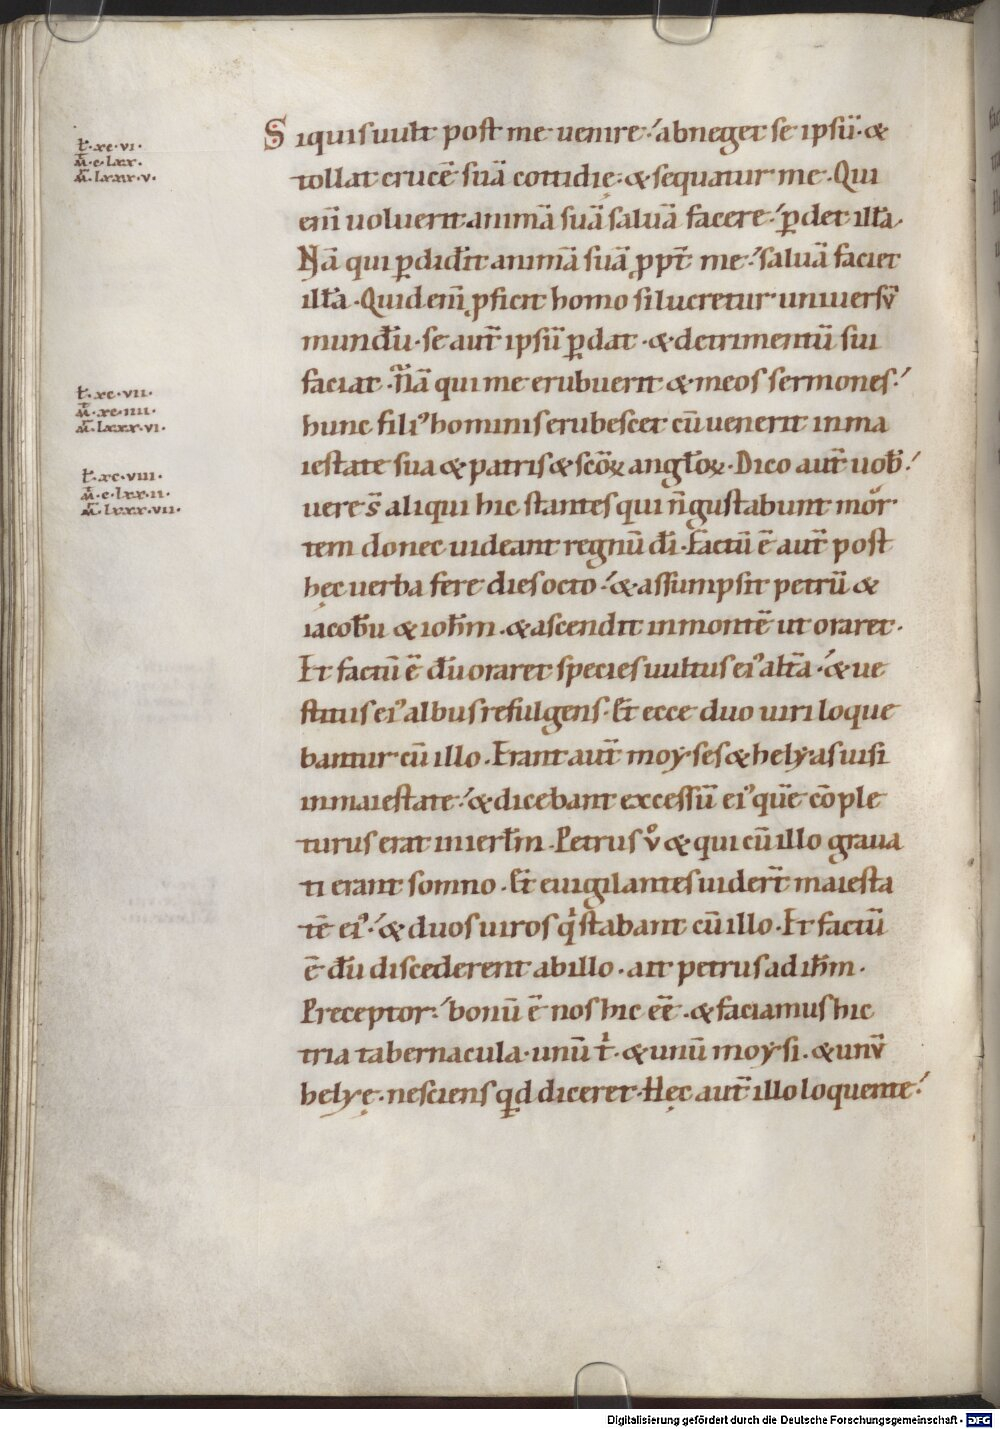 Siquis uult post me uenire. abneget se ipsū. &
tollat crucē suā cottidie. & sequatur me. Qui
eni̅ uoluerit animā suā saluā facere. p̱det illā.
Nā qui p̱didit̅ animā suā ꝓpt̅ me. saluā faciet
illā. Quid eni̅ ꝓficit homo si lucretur uniuersū
mundū. se aut̅ ipsū p̱dat. & detrimentū sui
faciat. Nā qui me erubuerit & meos sermones.
hunc filiꝰ hominis erubescet cū uenerit in ma
iestate sua & patris & sc̅oꝝ angl̅oꝝ. Dico aut̅ uob̅.
uere s̅ aliqui hic stantes qui n̅ gustabunt mor
tem donec uideant regnū di̅. Factū ē aut̅ post
hęc uerba fere dies octo. & assumpsit petrū &
iacob̅u & ioh̅m. & ascendit in montē ut oraret.
Et factū ē du̅ oraret species uultus eiꝰ alt̅a. & ue
stitus eiꝰ albus refulgens. Et ecce duo uiri loque
bantur cū illo. Erant aut̅ moyses & helyas uisi
in maiestate. & dicebant excessū eiꝰ quē cōple
turus erat in ierl̅m. Petrus uͦ & qui cū illo graua
ti erant somno. Et euigilantes uider̅t maiesta
tē eiꝰ. & duos uiros qͥ stabant cū illo. Et factū
ē du̅ discederent ab illo. ait petrus ad ih̅m.
Preceptor. bonū ē nos hic ee̅. & faciamus hic
tria tabernacula. unū tͥ. & unū moysi. & unū
helyę. nesciens qd̅ diceret. Hęc aut̅ illo loquente.
L. xc. vi.
M̅. c. lxx.
M̅. lxxx. v.
L. xc. vii.
M̅. xc. iiii.
M̅. lxxx. vi.
L. xc. viii.
M̅. c. lxx. ii.
M̅. lxxx. vii.
Digitalisierung gefördert durch die Deutsche Forschungsgemeinschaft - DFG